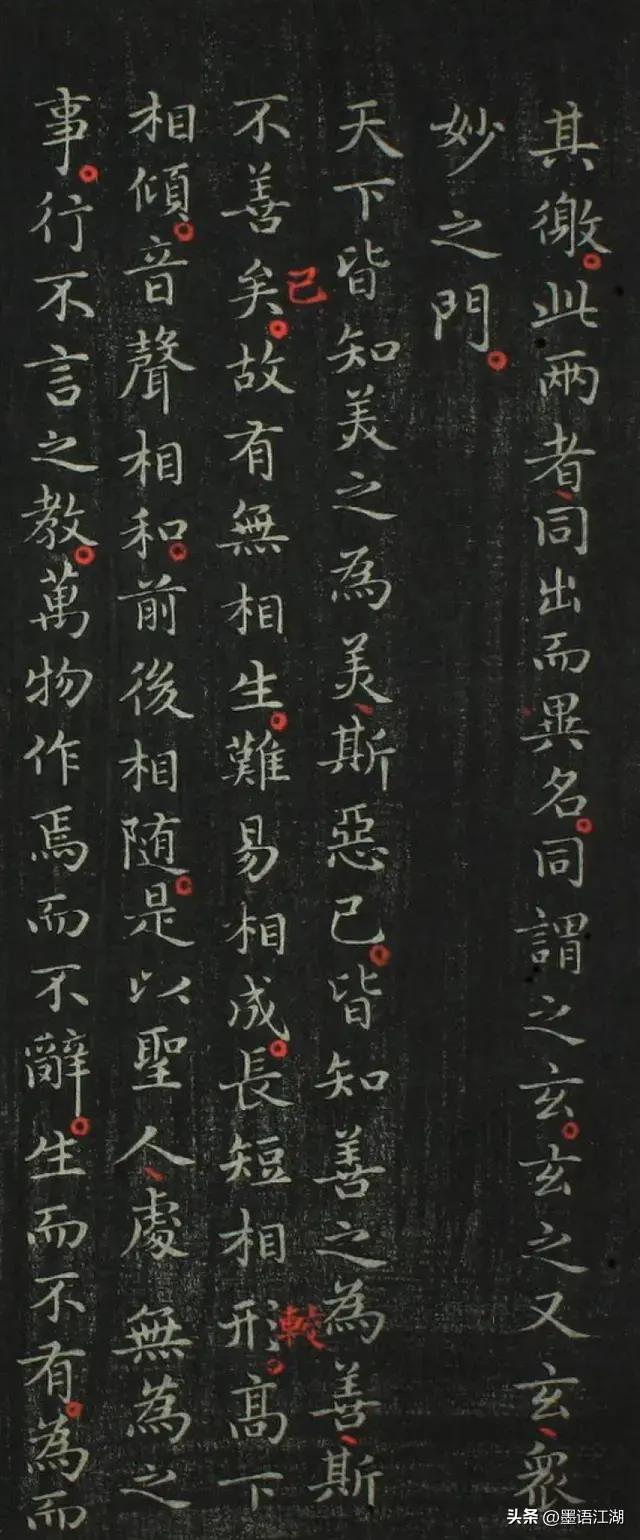 其徼。此兩者、同出而異名。同謂之玄。玄之又玄、眾
妙之門。
天下皆知美之為美、斯惡已。皆知善之為善、斯
已
較
不善矣。故有無相生。難易相成。長短相形。高下
相傾。音聲相和。前後相随。是以聖人、處無為之
事。行不言之教。萬物作焉而不辭。生而不有。為而
头条 @墨语江湖